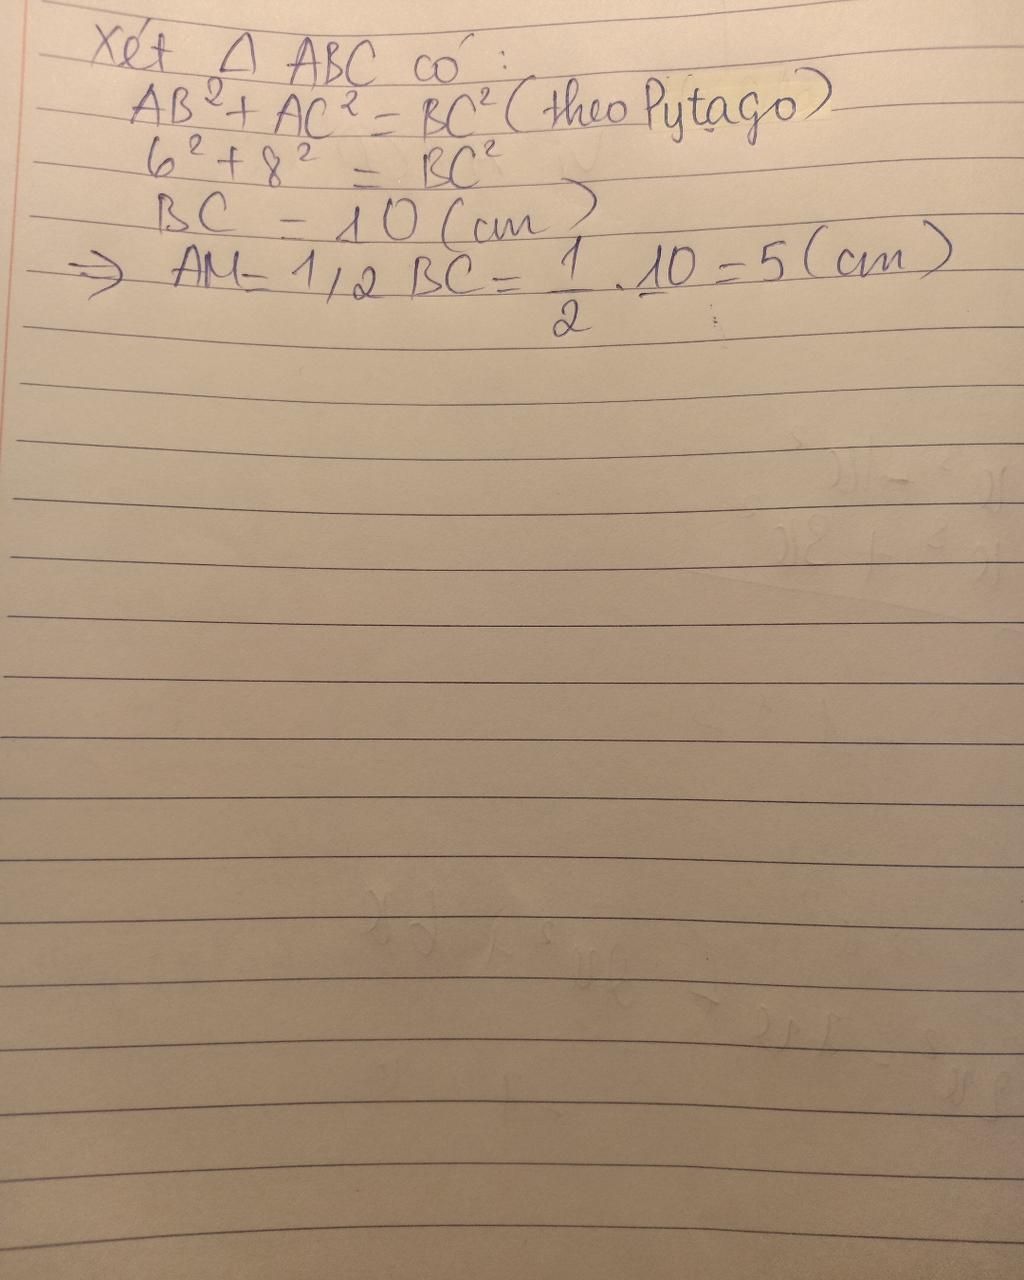 Xét Δ ABC có:
AB² + AC² = BC² (theo Pytago)
6² + 8² = BC²
BC = 10 (cm)
⇒ AM = 1/2 BC = 1/2 . 10 = 5 (cm)